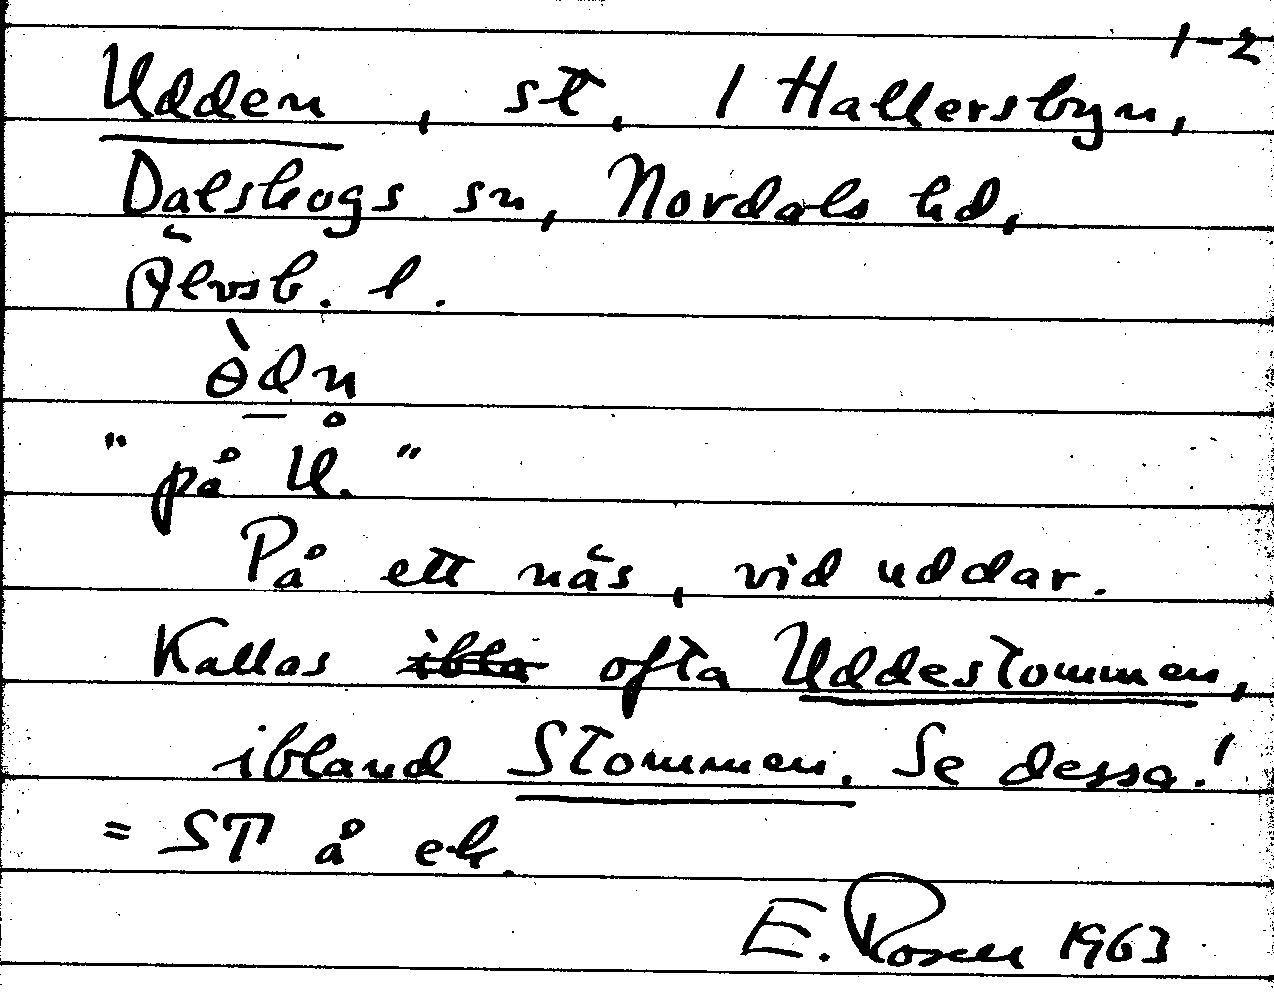 1-2
Udden, st. 1 Hallersbyn,
Dalskogs sn, Nordals hd,
Älvsb. l.
ɵ̀dn̥
"på U."
På ett näs, vid uddar.
Kallas ibla ofta Uddestommen,
ibland Stommen. Se dessa!
= ST å ek.
E. Rosell 1963